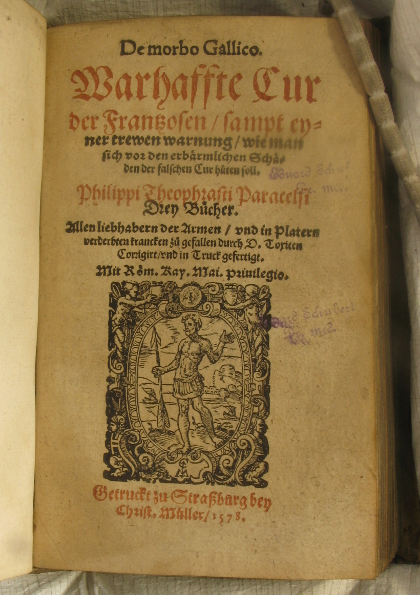 De morbo Gallico.
Warhaffte Cur
der Frantzosen / sampt ey-
ner trewen warnung / wie man
sich vor den erbärmlichen Schä-
den der falschen Cur hüten soll.
Philippi Theophrasti Paracelsi
Drey Bücher.
Allen liebhabern der Armen / vnd in Platern
verderbten krancken zů gefallen durch D. Toxiten
Corrigirt / vnd in Truck gefertigt.
Mit Röm. Kay. Mai. priuilegio.
Getruckt zu Straßburg bey
Christ. Müller / 1578.